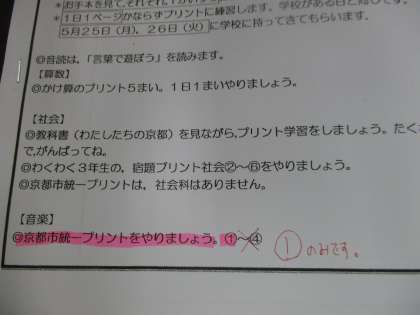 *お手本を見て、それぞれ、1か
*1日1ページかならずプリントに練習します。学校がある日と同じです。
5月25日(月)、26日(火)に学校に持ってきてもらいます。
◎音読は、「言葉で遊ぼう」を読みます。
【算数】
◎かけ算のプリント5まい。1日1まいやりましょう。
【社会】
◎教科書(わたしたちの京都)を見ながら、プリント学習をしましょう。たく
で、がんばってね。
◎わくわく3年生の、宿題プリント社会②~⑥をやりましょう。
◎京都市統一プリントは、社会科はありません。
【音楽】
◎京都市統一プリントをやりましょう。①~④ ①のみです。